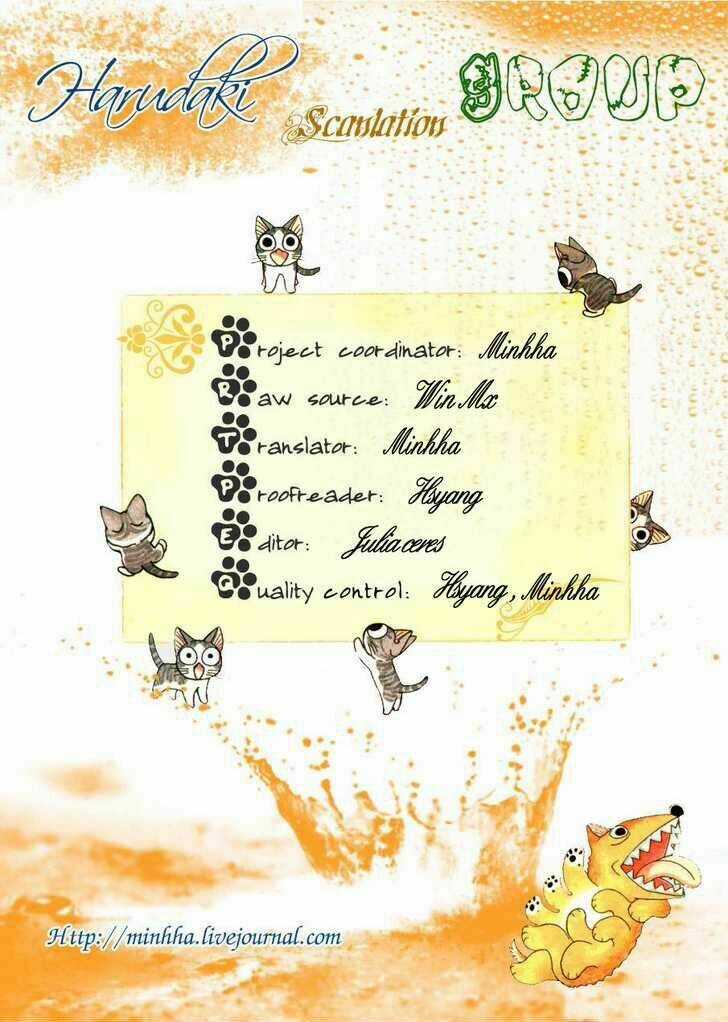 Harudaki Scanlation GROUP
Project coordinator: Minhha
Raw source: Win Mx
Translator: Minhha
Proofreader: Hsyang
Editor: Julia ceres
Quality control: Hsyang, Minhha
Http://minhha.livejournal.com